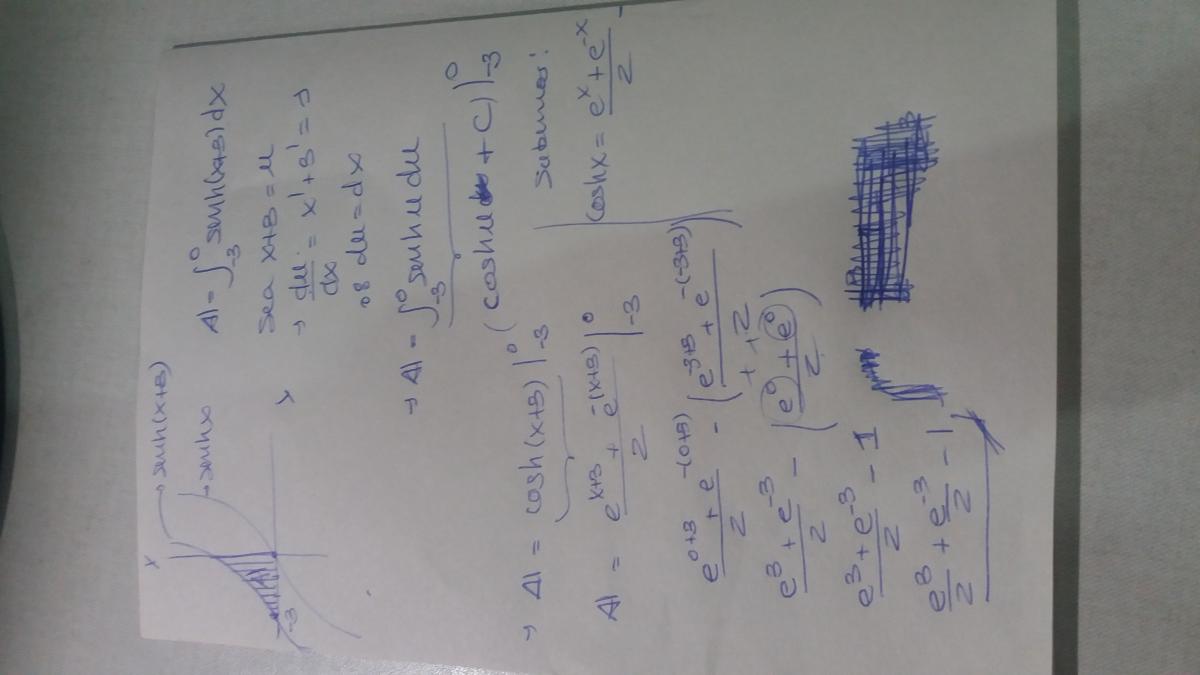 y
→ senh(x+3)
→ senhx
A1
-3
x
A1 = ∫₋₃⁰ senh(x+3)dx
Sea x+3 = u
→ du/dx = x' + 3' = 1
∴ du = dx
→ A1 = ∫₋₃⁰ senhu du
(coshu + C)|₋₃⁰
→ A1 = cosh(x+3)|₋₃⁰
Sabemos:
coshx = (eˣ + e⁻ˣ)/2
A1 = (eˣ⁺³ + e⁻⁽ˣ⁺³⁾)/2 |₋₃⁰
(e⁰⁺³ + e⁻⁽⁰⁺³⁾)/2 - ((e⁻³⁺³ + e⁻⁽⁻³⁺³⁾)/2)
(e³ + e⁻³)/2 - ((e⁰ + e⁰)/2)
(e³ + e⁻³)/2 - 1
e³/2 + e⁻³/2 - 1